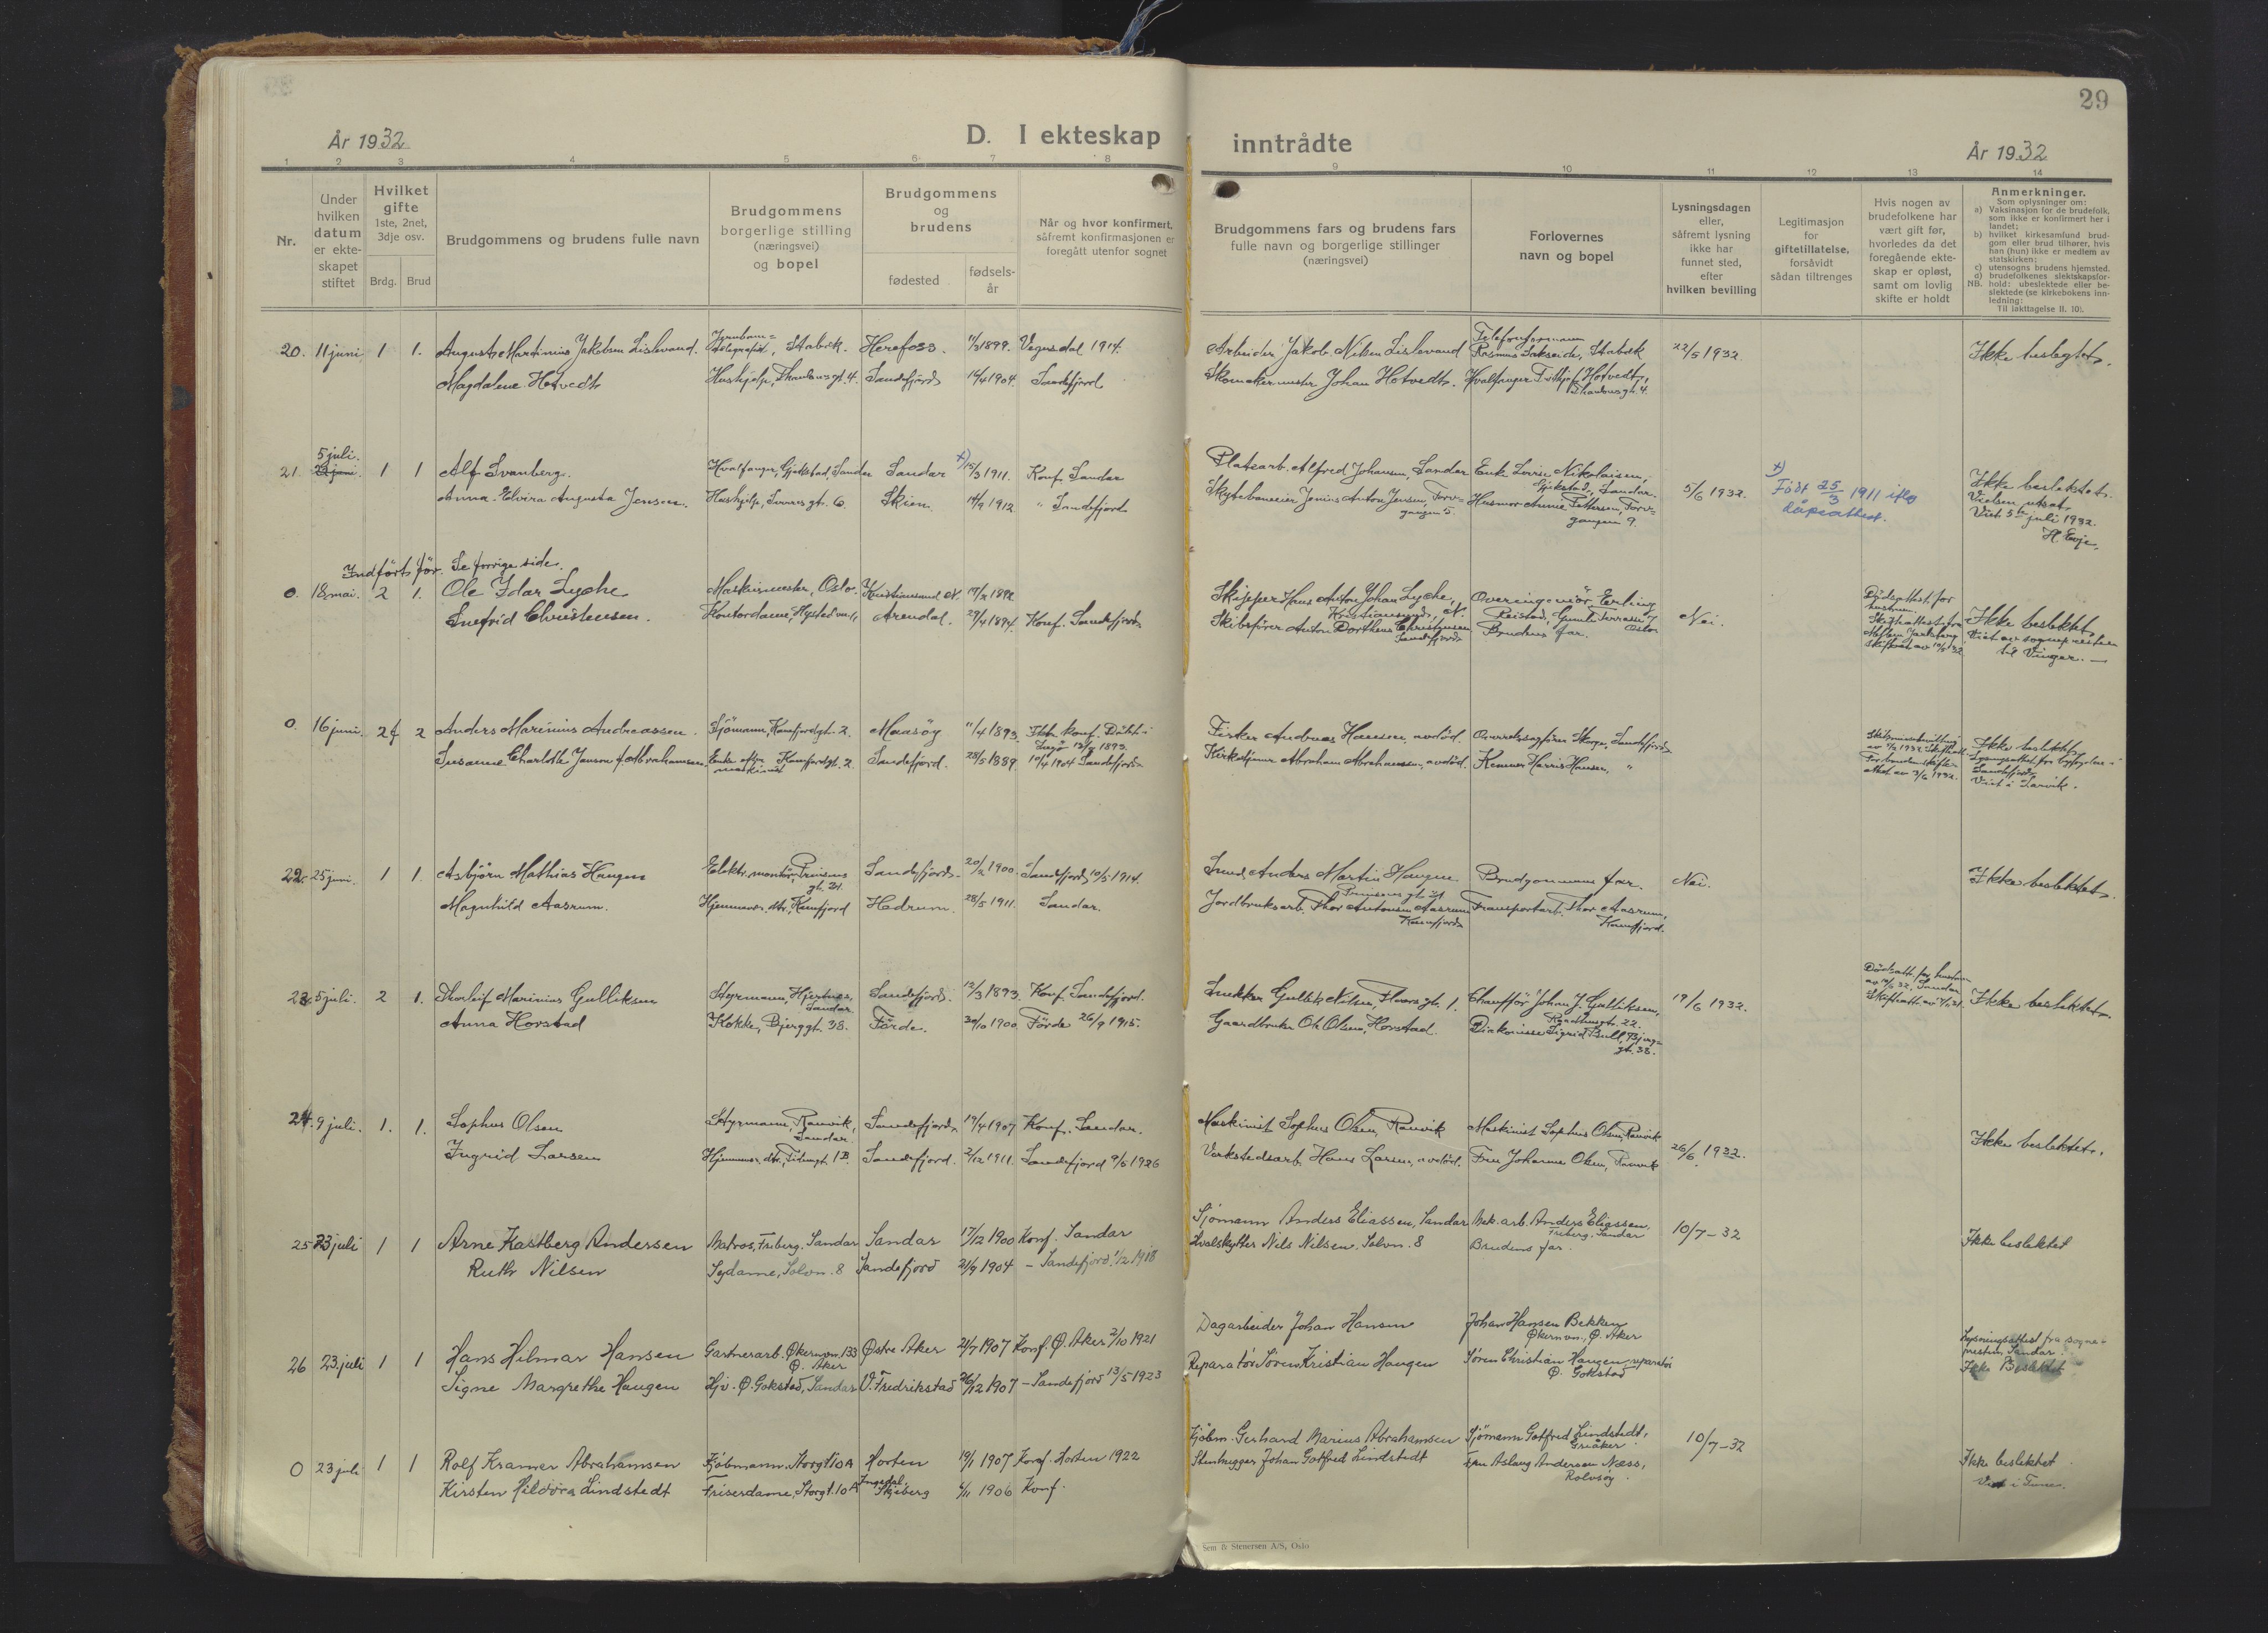 29
År 1932
D. I ekteskap inntrådte
År 1932
1 2 3 4 5 6 7 8 9 10 11 12 13 14
Nr.
Under
hvilken
datum
er ekte-
skapet
stiftet
Hvilket
gifte
1ste, 2net,
3dje osv.
Brdg. Brud
Brudgommens og brudens fulle navn
Brudgommens
borgerlige stilling
(næringsvei)
og bopel
Brudgommens
og
brudens
fødested
fødsels-
år
Når og hvor konfirmert,
såfremt konfirmasjonen er
foregått utenfor sognet
Brudgommens fars og brudens fars
fulle navn og borgerlige stillinger
(næringsvei)
Forlovernes
navn og bopel
Lysningsdagen
eller,
såfremt lysning
ikke har
funnet sted,
efter
hvilken bevilling
Legitimasjon
for
giftetillatelse,
forsåvidt
sådan tiltrenges
Hvis nogen av
brudefolkene har
vært gift før,
hvorledes da det
foregående ekte-
skap er opløst,
samt om lovlig
skifte er holdt
Anmerkninger.
Som oplysninger om:
a) Vaksinasjon for de brudefolk,
som ikke er konfirmert her i
landet;
b) hvilket kirkesamfund brud-
gom eller brud tilhører, hvis
han (hun) ikke er medlem av
statskirken;
c) utensogns brudens hjemsted.
d) brudefolkenes slektskapsfor-
NB. hold: ubeslektede eller be-
slektede (se kirkebokens inn-
ledning:
Til iakttagelse II. 10).
20. 11 juni 1 1. August Martinius Jakobsen Lislevand. Jernbane-
telegrafist, Stabek. Herefoss. 1899. Vegusdal 1914.
Magdalene Hotvedt Hushjelp, Thaulowsgt. 4. Sandefjord 14/4 1904. Sandefjord
Arbeider Jakob Nilsen Lislevand
Skomakermester Johan Hotvedt.
Telefonformann
Rasmus Sakseide, Stabæk
Hvalfanger Fridtjof Hotvedt,
Thaulowsgt. 4.
22/5 1932.
Ikke beslegtet.
5 juli.
21. 1 1 Alf Svanberg. Hvalfanger, Gjekstad, Sandar Sandar x) 15/3 1911. Konf. Sandar
Anna Elvira Augusta Jensen. Hushjelp, gt. 6. Skien. 14/9 1912 " Sandefjord
Platsarb. Alfred Johansen, Sandar
Skytebaneeier Jenius Anton Jensen, Torv-
gangen 5.
Enke Lovise Nikolaisen,
Gjekstad, Sandar.
Husmor Anna Pettersen, Torv-
gangen 9.
5/6 1932.
x)
Født 25/3 1911 iflg
dåpsattest.
Ikke beslektet.
Vielsen utsat.
Viet 5te juli 1932.
H. Evje.
Indført før. Se forrige side.
0. 18 mai. 2 1. Ole Idar Lyche Maskinmester, Oslo. Kristiansund N. 17/2 1892
Snefrid Christensen. Kontordame, Arendal. 29/4 1894. Konf. Sandefjord
Skipper Hans Anton Johan Lyche,
Kristiansund, N.
Skibsfører Anton Dortheus Christensen
Sandefjord
Overingeniør Erling
Reistad, Terrasse 7
Oslo
Brudens far.
Nei.
Dødsattest for
hustruen.
Skifteattest fra
Jarlsberg
skifterett av 14/5 32
Ikke beslektet.
Viet av sognepresten
til Vinger. —
0. 16 juni. 2 f 2 Anders Marinius Andreassen. Sjømann, Kamfjordgt. 2. Maasøy 11/4 1893. Ikke konf. Døbt i
Ingø 13/8 1893.
Susanne Charlotte Jansen f. Abrahamsen. Enke efter
maskinist Kamfjordgt. 2. Sandefjord. 28/5 1889. 10/4 1904 Sandefjord
Fisker Andreas Hansen, avdød.
Kirketjener Abraham Abrahamsen, avdød.
Overrettssagfører Skorge, Sandefjord
Kemner Harris Hansen, "
Ikke beslektet.
Lysningsattest fra byfogden i
Sandefjord
Viet i Larvik.
22. 25 juni. 1 1. Asbjørn Mathias Haugen Elektr. montør, Prinsens
gt. 21. Sandefjord. 20/2 1900. Sandefjord 10/5 1914.
Magnhild Aasrum. Hjemmev. dtr., Kamfjord Hedrum. 28/5 1911. Sandar.
Smed, Anders Martin Haugen
Prinsens gt. 21
Jordbruksarb. Thor Antonsen Aasrum
Kamfjord
Brudgommens far.
Transportarb. Thor Aasrum,
Kamfjord.
Nei.
Ikke beslektet.
23. 5 juli. 2 1. Thorleif Marinius Gulliksen Styrmann, Hjertnes,
Sandar Sandefjord. 12/3 1893. Konf. Sandefjord.
Anna Horstad Kokke, Bjerggt. 38. Førde. 1900 Førde 26/9 1915.
Snekker Gullik Nilsen, Floragt. 1.
Gaardbruker O. Olsen, Horstad.
Chauffør Johan J. Gulliksen,
22.
Diakonisse Sigrid Bull, Bjerg-
gt. 38.
19/6 1932.
Ikke beslektet.
24. 9 juli. 1. 1. Sophus Olsen Styrmann, Ranvik,
Sandar. Sandefjord. 19/4 1907 Konf. Sandar.
Ingrid Larsen Hjemmev. dtr., 1B. Sandefjord. 2/12 1911. Sandefjord 9/5 1926
Maskinist Sophus Olsen, Ranvik
Verkstedsarb. Hans Larsen, avdød.
Maskinist Sophus Olsen, Ranvik
Fru Johanne Olsen, Ranvik
26/6 1932.
Ikke beslektet.
25 23 juli 1 1 Arne Kastberg Andersen Matros, Friberg, Sandar Sandar 17/12 1900 Konf. Sandar
Ruth Nilsen Sydame, Solvn. 8 Sandefjord 21/9 1904 – Sandefjord 1/12 1918
Sjømann Anders Eliassen, Sandar
Hvalskytter Nils Nilsen, Solvn. 8
Mek. arb. Anders Eliassen,
Friberg, Sandar
Brudens far.
10/7–32
Ikke beslektet
26 23. juli 1 1 Hans Hilmar Hansen Gartnerarb. Økernvn. 133
Ø. Aker Østre Aker 21/7 1907 Konf. Ø. Aker 2/10 1921
Signe Margrethe Haugen Hjv. Ø. Gokstad, Sandar V. Fredrikstad 26/12 1907 – Sandefjord 13/5 1923
Dagarbeider Johan Hansen
Reparatør Søren Kristian Haugen
Johan Hansen Bekken
Økernvn., Ø. Aker
Søren Christian Haugen, reparatør
Ø. Gokstad
Lysningsattest fra sogne-
presten, Sandar.
Ikke Beslektet
0 23 juli 1 1 Rolf Kramer Abrahamsen Kjøbmann, Storgt. 10A Horten 19/1 1907 Konf. Horten 1922
Kirsten Hildora Lindstedt Friserdame, Storgt. 10A Ingedal,
Skjeberg 6/11 1906 Konf.
Kjøbm. Gerhard Marius Abrahamsen
Stenhugger Johan Gotfred Lindstedt
Sjømann Gotfred Lindstedt,
Greåker
Fru Aslaug Andersen Næss,
Rolvsøy.
10/7–32
Ikke beslektet
Viet i Tune.
Sem & Stenersen A/S, Oslo